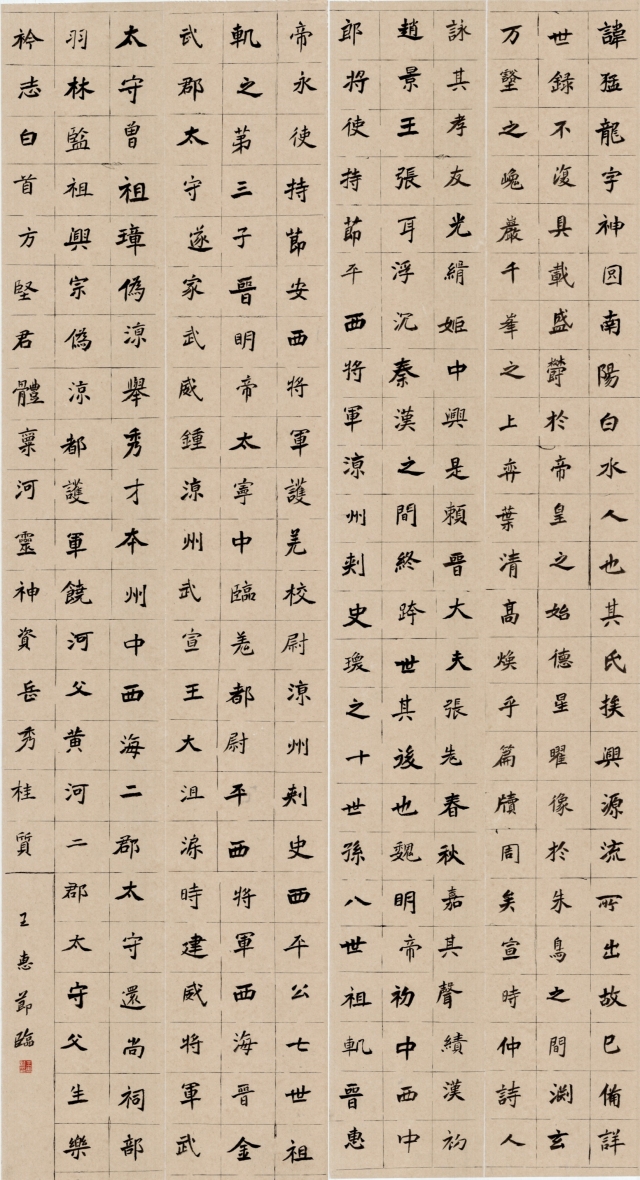 諱猛龍字神囧南陽白水人也其氏挨興源流所出故已備詳
世録不復具載盛欝於帝皇之始德星曜像於朱鳥之間渕玄
万壑之峗巖千峯之上弈葉清高煥乎篇牘周矣宣時仲詩人
詠其孝友光緝姫中興是賴晉大夫張老春秋嘉其聲績漢初
趙景王張耳浮沉秦漢之間終跨世其後也魏明帝初中西中
郎將使持節平西將軍涼州刾史瓊之十世孫八世祖軌晉惠
帝永使持節安西將軍護羌校尉涼州刾史西平公七世祖
軌之苐三子晉明帝太寧中臨羌都尉平西將軍西海晉金
武郡太守遂家武威鍾涼州武宣王大沮渠時建威將軍武
太守曽祖璋偽涼舉秀才本州中西海二郡太守還尚祠部
羽林監祖興宗偽涼都護軍饒河父黄河二郡太守父生樂
衿志白首方堅君體稟河靈神資岳秀桂質
王惠節臨